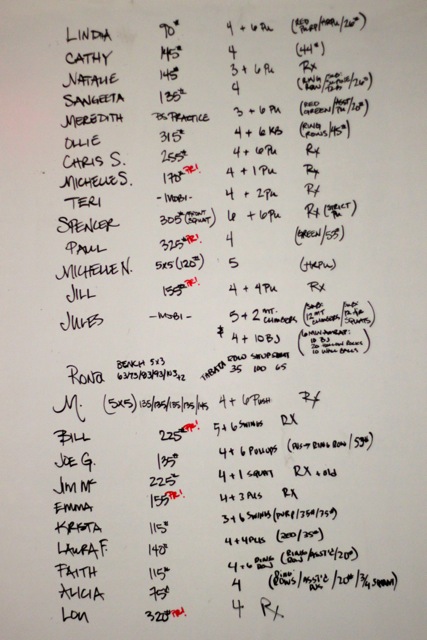 LINDA 90# 4 + 6 PU (RED PURP/
CATHY 145# 4 (44#)
NATALIE 145# 3 + 6 PU RX
SANGEETA 135# 4 (RING ROW/
MEREDITH BS PRACTICE 3 + 6 PU (RED GREEN/ASST PU/20#)
OLLIE 315# 4 + 6 KB (RING ROWS/45#)
CHRIS S. 255# 4 + 6 PU RX
MICHELLE S. 170# PR! 4 + 1 PU RX
TERI - MOBI - 4 + 2 PU RX
SPENCER 305# (FRONT SQUAT) 6 + 6 PU RX (STRICT PU)
PAUL 325# PR! 4 (GREEN/53#)
MICHELLE N. 5x5 (120#) 5 (HRPU)
JILL 155# PR! 4 + 4 PU RX
JULES - MOBI - 5 + 2 MT. CLIMBERS (SUB: 12 MT CLIMBERS/SUB: 12 AIR SQUATS)
* 4 + 10 BJ (6 MIN AMRAP: 10 BJ 20 HOLLOW ROCKS 10 WALL BALLS)
RONA BENCH 5x3 63/73/83/93/103 x2 TABATA ROW SITUP 35 100 65
M. (5x5) 135/135/135/135/145 4 + 6 PUSH RX
BILL 225# PR! 5 + 6 SWINGS RX
JOE G. 135# 4 + 6 PULLUPS RING ROW/53#)
JIM Mc 225# 4 + 1 SQUAT RX + old
EMMA 155# PR! 4 + 3 PUS RX
KRISTA 115# 3 + 6 SWINGS (PURP/25#/35#)
LAURA F. 140# 4 + 4 PUs (RED/35#)
FAITH 115# 4 + 6 RING ROW (RING ROW/ASST'D/20#)
ALICIA 75# 4 (RING ROWS/ASST'D PUS/20#/3/4
LOU 320# PR! 4 RX